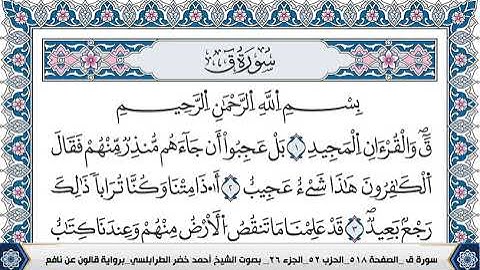 سُورَةُ قٓ
بِسْمِ اِللَّهِ اِلرَّحْمَٰنِ اِلرَّحِيمِ
قَٓ وَالْقُرْءَانِ اِلْمَجِيدِ ١ بَلْ عَجِبُوٓاْ أَن جَآءَهُم مُّنذِرٞ مِّنْهُمْ فَقَالَ
اَلْكَٰفِرُونَ هَٰذَا شَےْءٌ عَجِيبٌ ٢ أَٰ۟ذَا مِتْنَا وَكُنَّا تُرَاباٗ ذَٰلِكَ
رَجْعُۢ بَعِيدٞ ٣ قَدْ عَلِمْنَا مَا تَنقُصُ اُلْأَرْضُ مِنْهُمْ وَعِندَنَا كِتَٰبٌ
سورة ق _الصفحة ٥١٨_ الحزب ٥٢_ الجزء ٢٦_ بصوت الشيخ أحمد خضر الطرابلسي _برواية قالون عن نافع